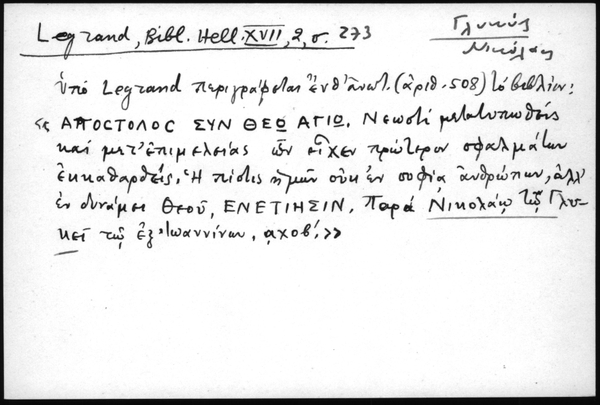 Legrand, Bibl. Hell. XVII, 2, σ. 273
Γλυκύς
Νικόλαος
Ὑπό Legrand περιγράφεται ἔνθ' ἀνωτ. (ἀριθ. 508) τό βιβλίον:
«ΑΠΟΣΤΟΛΟΣ ΣΥΝ ΘΕΩ ΑΓΙΩ. Νεωστί μετατυπωθείς
καί μετ' ἐπιμελείας ὧν εἶχεν πρώτερον σφαλμάτων
ἐκκαθαρθείς. Ἡ πίστις ἡμῶν οὐκ ἐν σοφίᾳ ἀνθρώπων, ἀλλ'
ἐν δυνάμει Θεοῦ, ΕΝΕΤΙΗΣΙΝ, Παρά Νικολάῳ τῷ Γλυ-
κεῖ τῷ ἐξ Ἰωαννίνων, αχοβ'.»